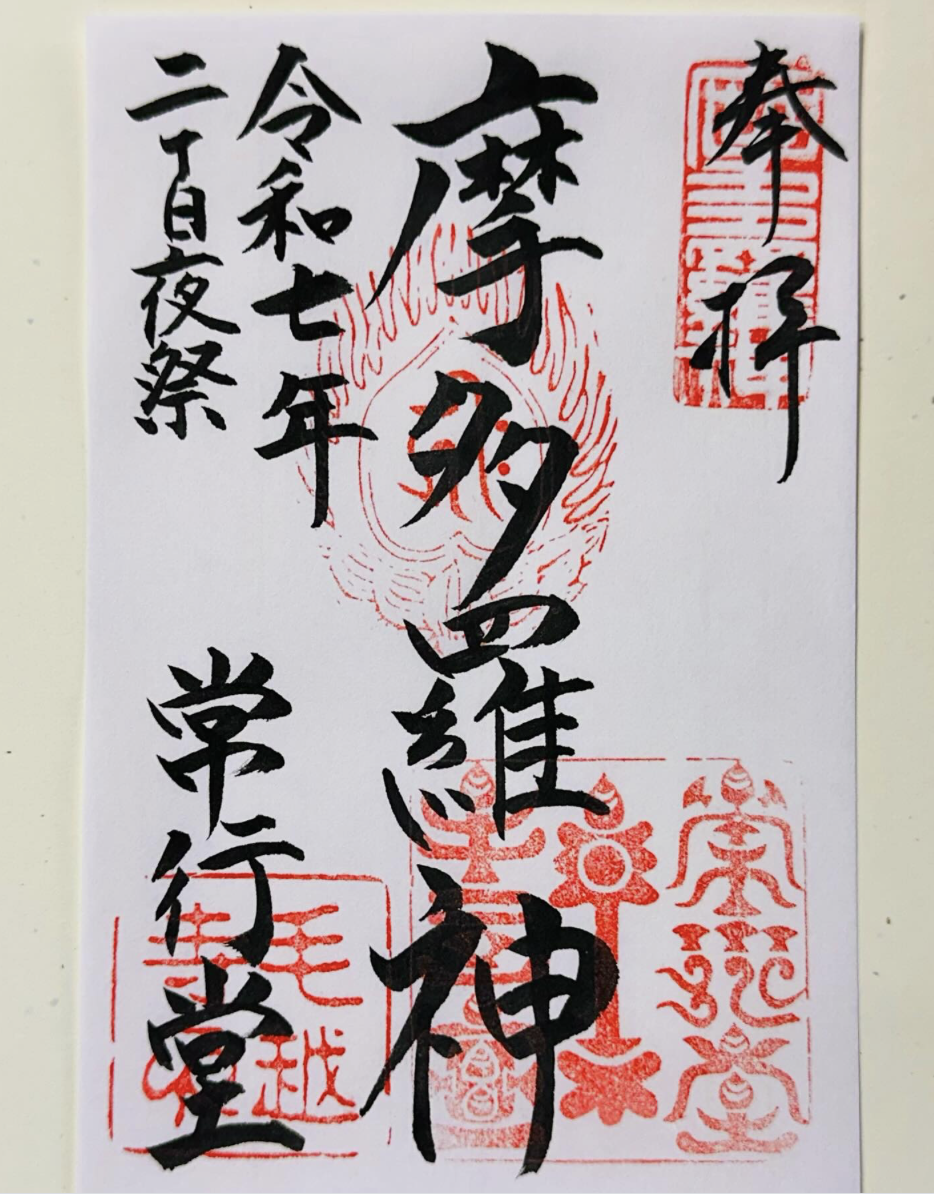 奉拝
摩多羅神
令和七年
二十日夜祭
常行堂
毛越
寺印
常行堂